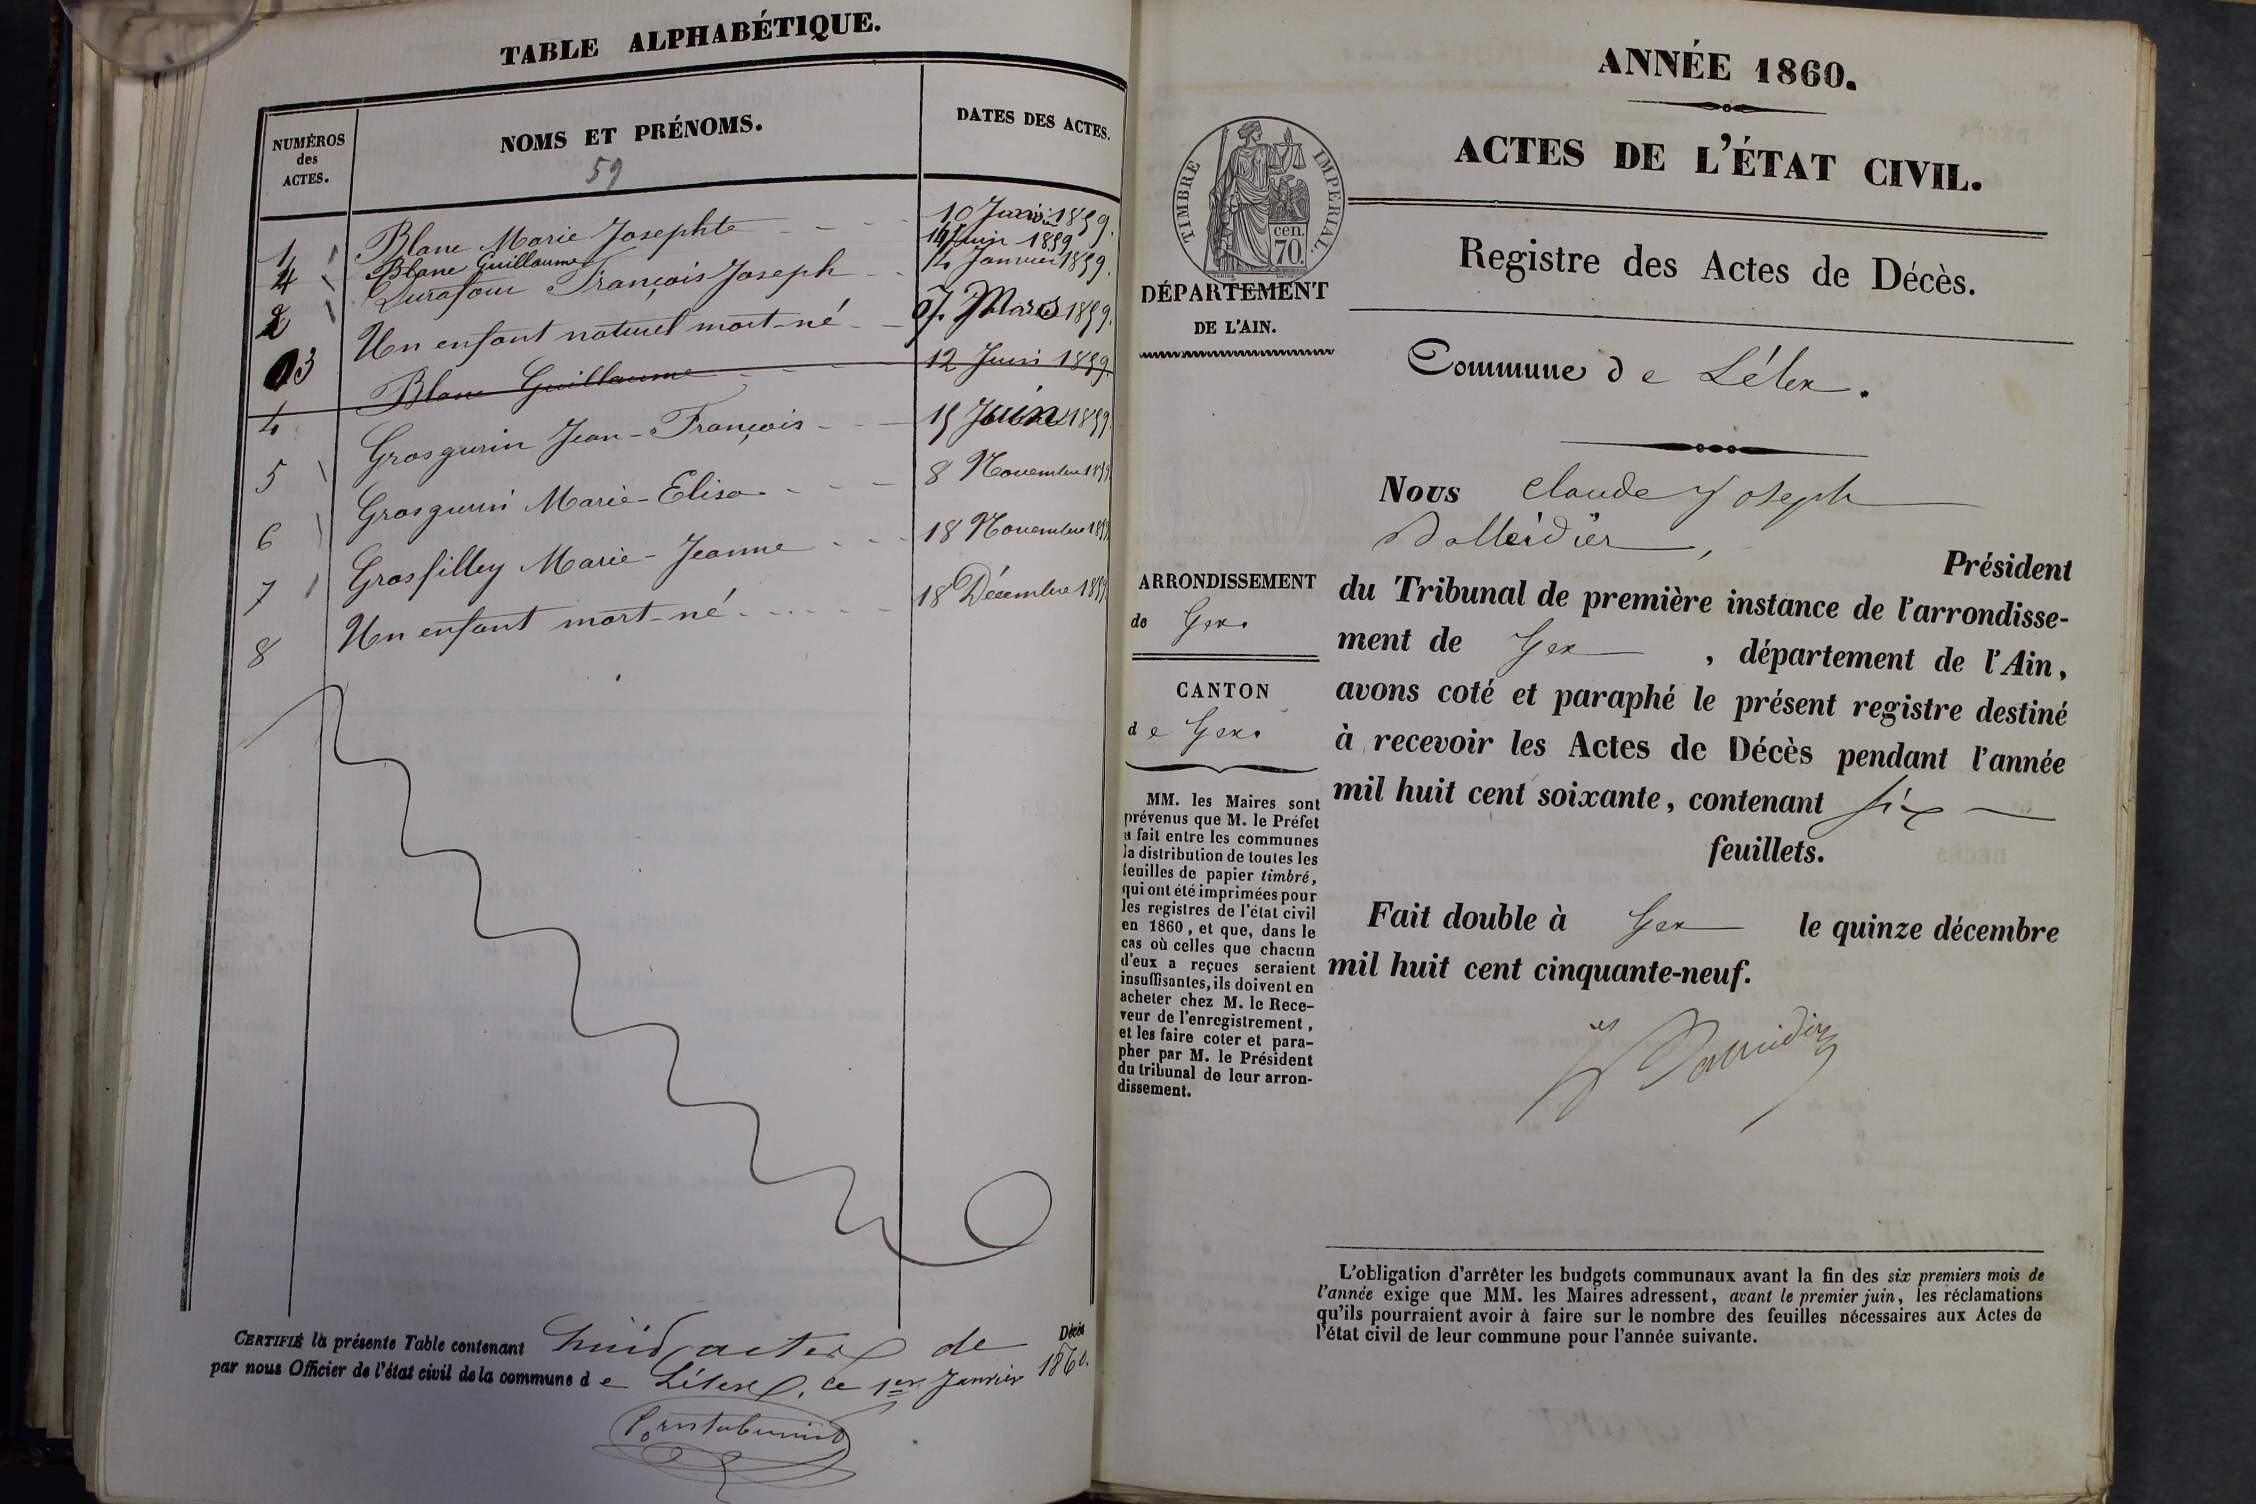 TABLE ALPHABÉTIQUE.
NUMÉROS des ACTES.
NOMS ET PRÉNOMS.
DATES DES ACTES.
59
1 Blanc Marie Josephte 10 1859.
4 Blanc Guillaume 14 Juin 1859
2 Durafour François Joseph 14 Janvier 1859.
3 Un enfant naturel mort-né 7. Mars 1859.
4 Blanc Guillaume 12 Juin 1859.
5 Grosgurin Jean-François 15 Juin 1859.
6 Grosgurin Marie-Elisa 8 Novembre 1859
7 Grosfilley Marie-Jeanne 18 Novembre 1859
8 Un enfant mort-né 18 Décembre 1859
CERTIFIÉ la présente Table contenant huit actes de Décès
par nous Officier de l'état civil de la commune de Lélex, ce 1er Janvier 1860.
ANNÉE 1860.
ACTES DE L'ÉTAT CIVIL.
TIMBRE IMPÉRIAL.
cen.
70.
DÉPARTEMENT
DE L'AIN.
Registre des Actes de Décès.
Commune de Lélex.
ARRONDISSEMENT
de Gex.
CANTON
de Gex.
MM. les Maires sont
prévenus que M. le Préfet
a fait entre les communes
la distribution de toutes les
feuilles de papier timbré,
qui ont été imprimées pour
les registres de l'état civil
en 1860, et que, dans le
cas où celles que chacun
d'eux a reçues seraient
insuffisantes, ils doivent en
acheter chez M. le Rece-
veur de l'enregistrement,
et les faire coter et para-
pher par M. le Président
du tribunal de leur arron-
dissement.
Nous Claude Joseph
Président
du Tribunal de première instance de l'arrondisse-
ment de Gex, département de l'Ain,
avons coté et paraphé le présent registre destiné
à recevoir les Actes de Décès pendant l'année
mil huit cent soixante, contenant six
feuillets.
Fait double à Gex le quinze décembre
mil huit cent cinquante-neuf.
L'obligation d'arrêter les budgets communaux avant la fin des six premiers mois de
l'année exige que MM. les Maires adressent, avant le premier juin, les réclamations
qu'ils pourraient avoir à faire sur le nombre des feuilles nécessaires aux Actes de
l'état civil de leur commune pour l'année suivante.